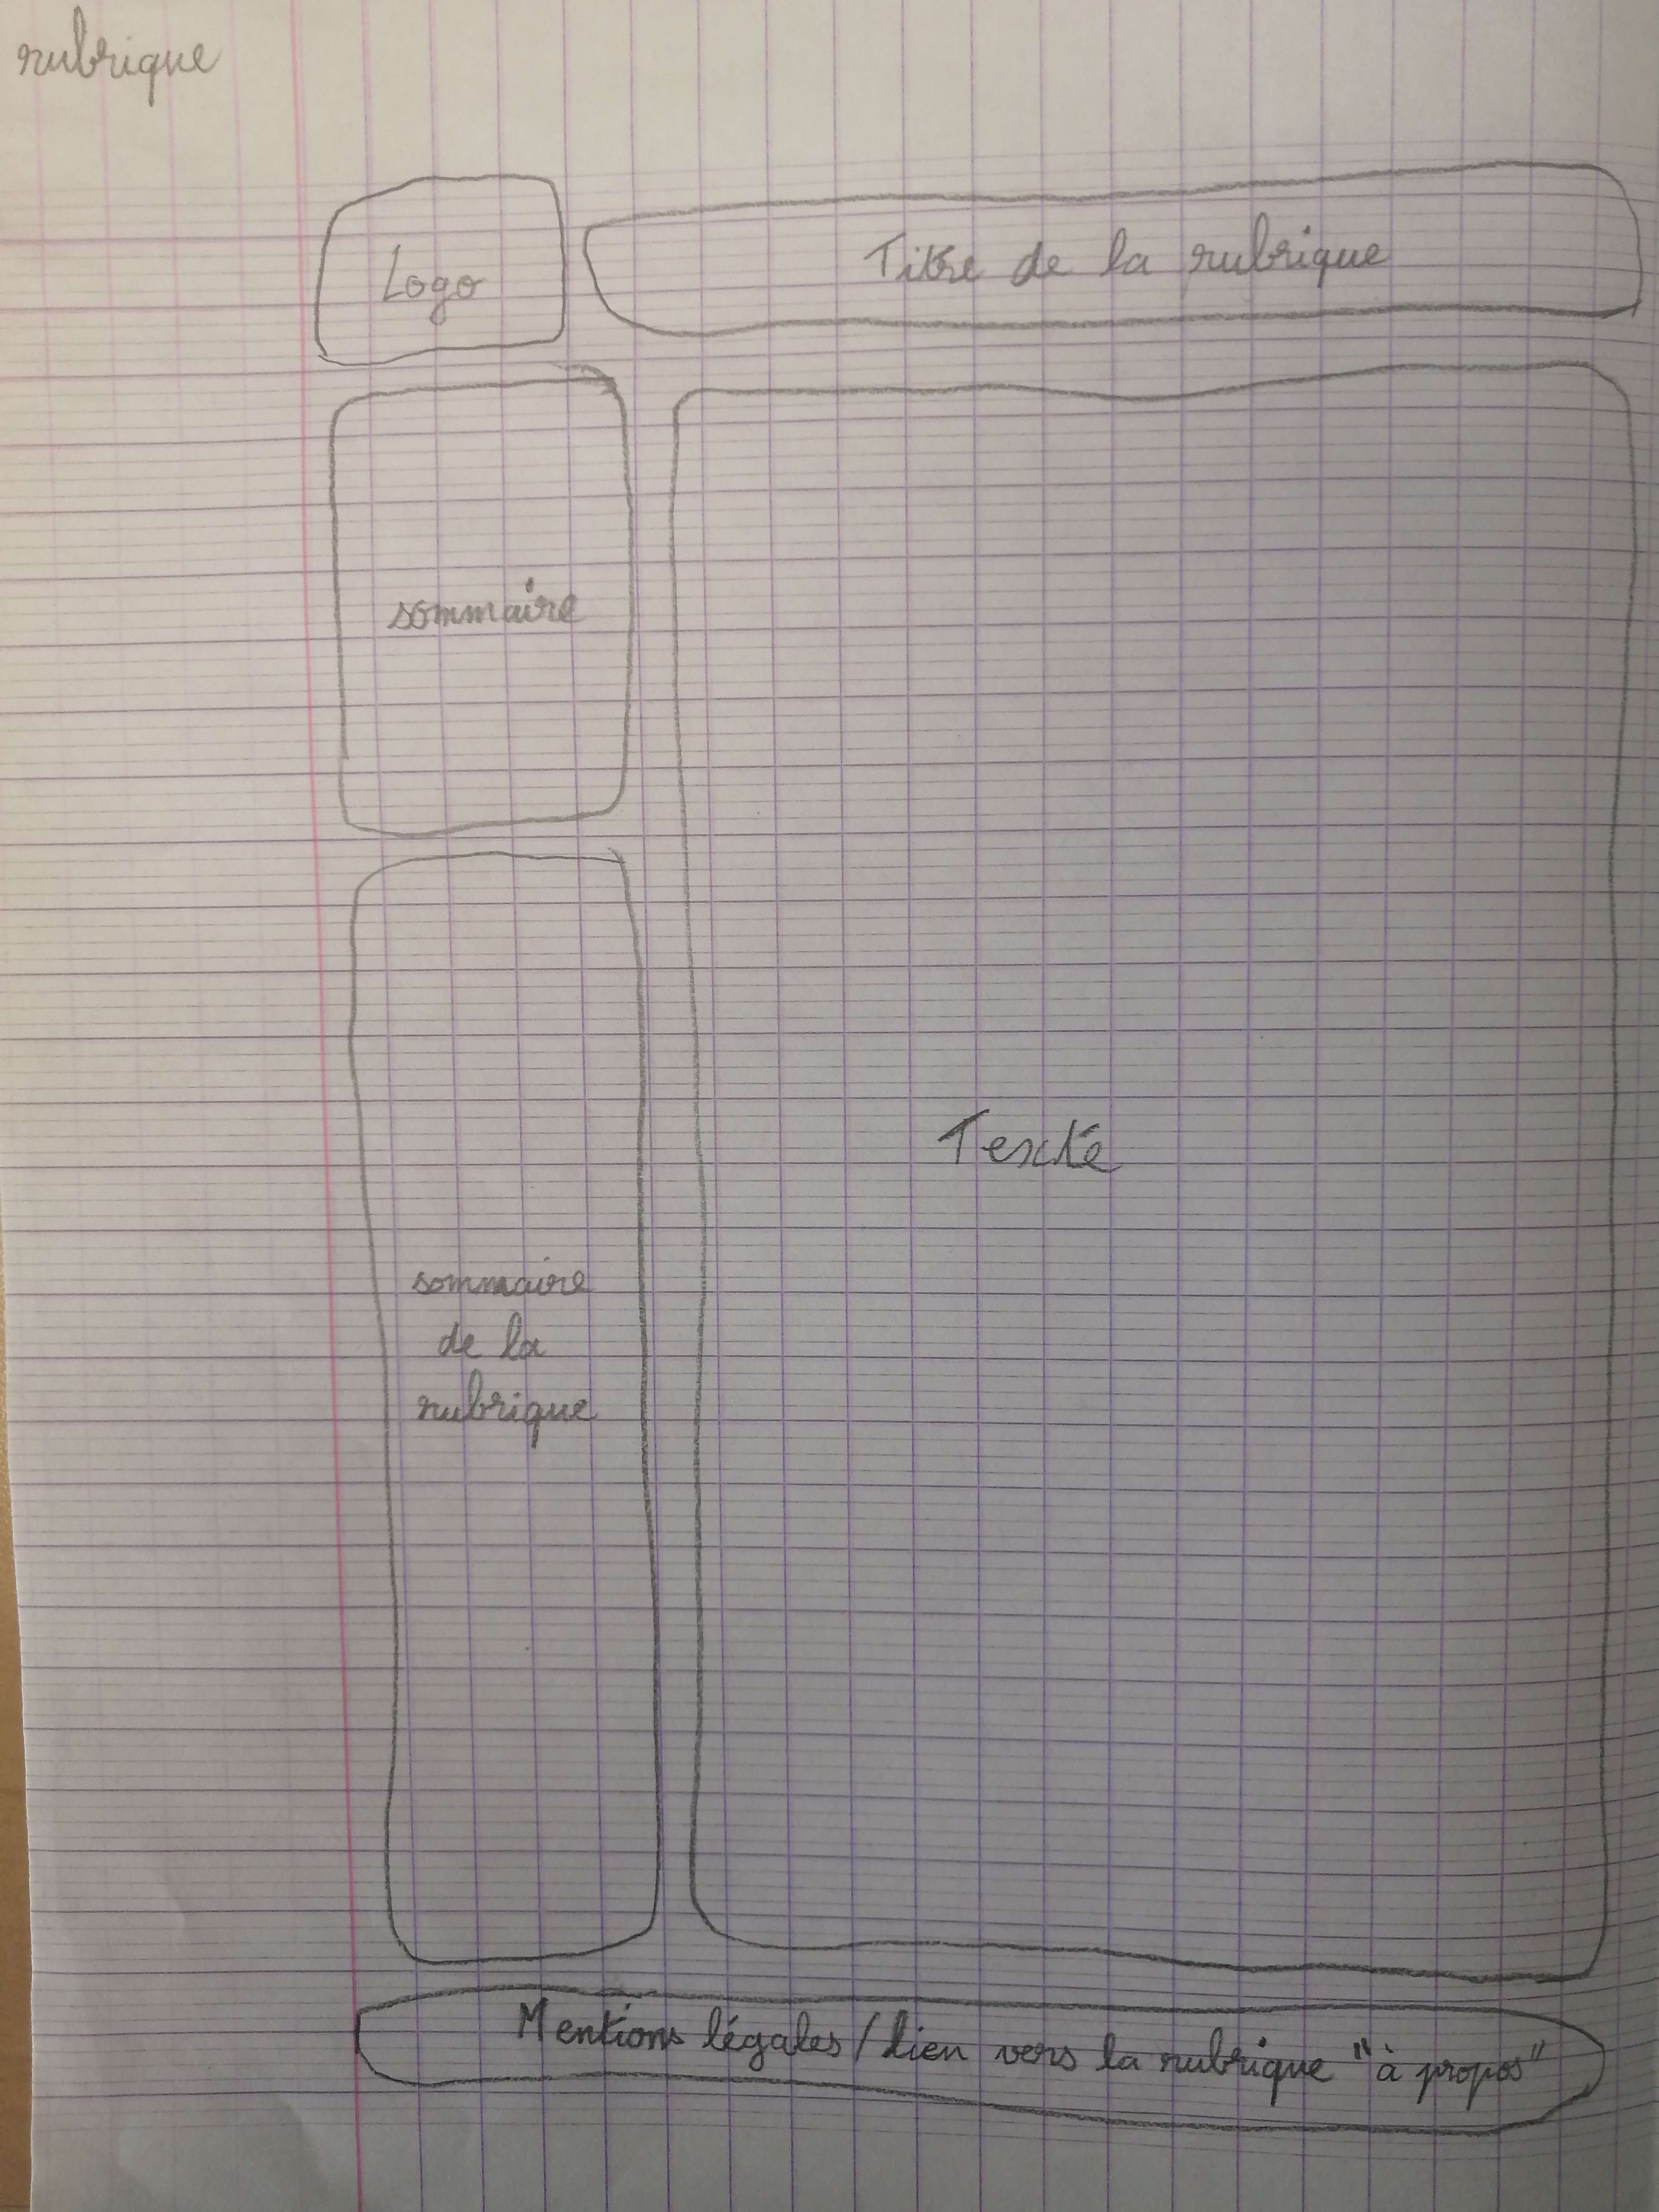 rubrique
Logo
Titre de la rubrique
sommaire
Texte
sommaire
de la
rubrique
Mentions légales / lien vers la rubrique "à propos"